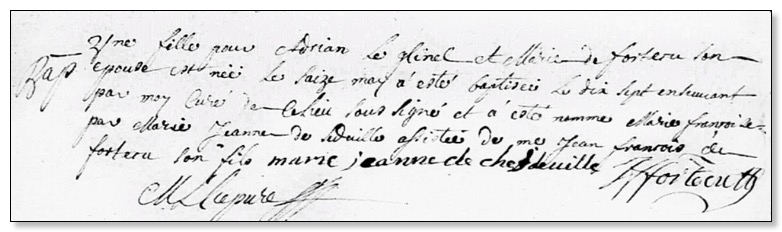 Bap
Une fille pour Adrian Le Minel et Marie de forteru son
epouse est née Le Saize may á esté baptisée Le dix sept ensuivant
par moy Curé de Celieu soussigné et á esté nomme Marie françoise
par Marie Jeanne de Sideville assistée de me Jean francois de
forteru son fils marie jeanne de chefdeuille forteeu
M Lepure